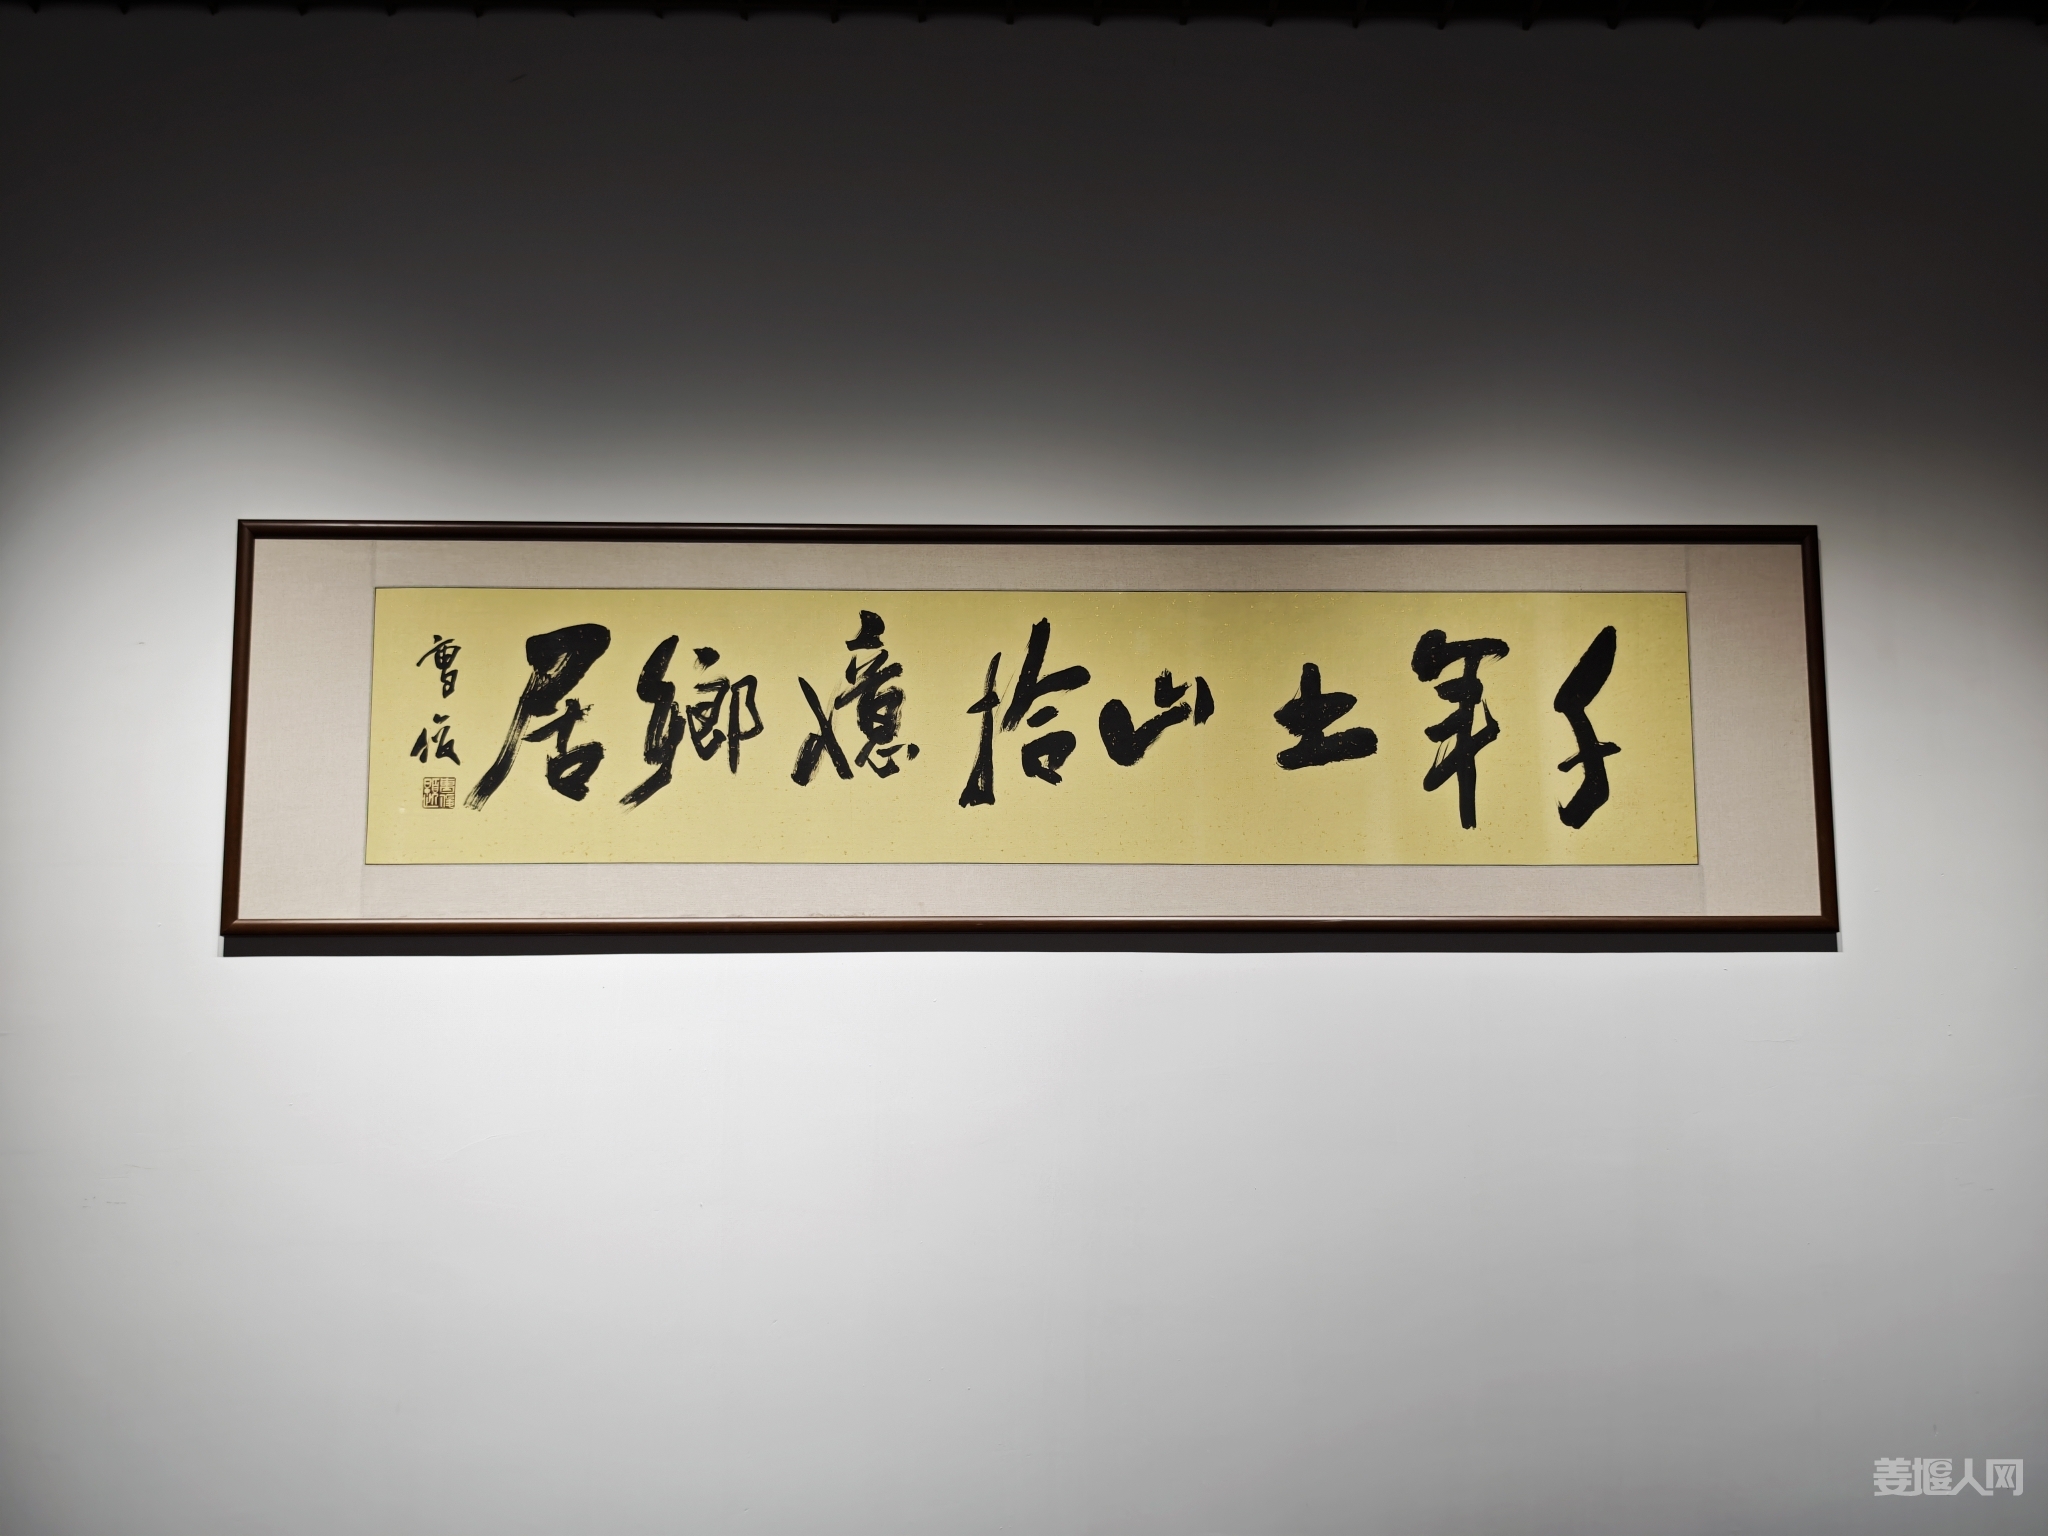 千年土山拾憶鄉居
曹俊
姜堰人网